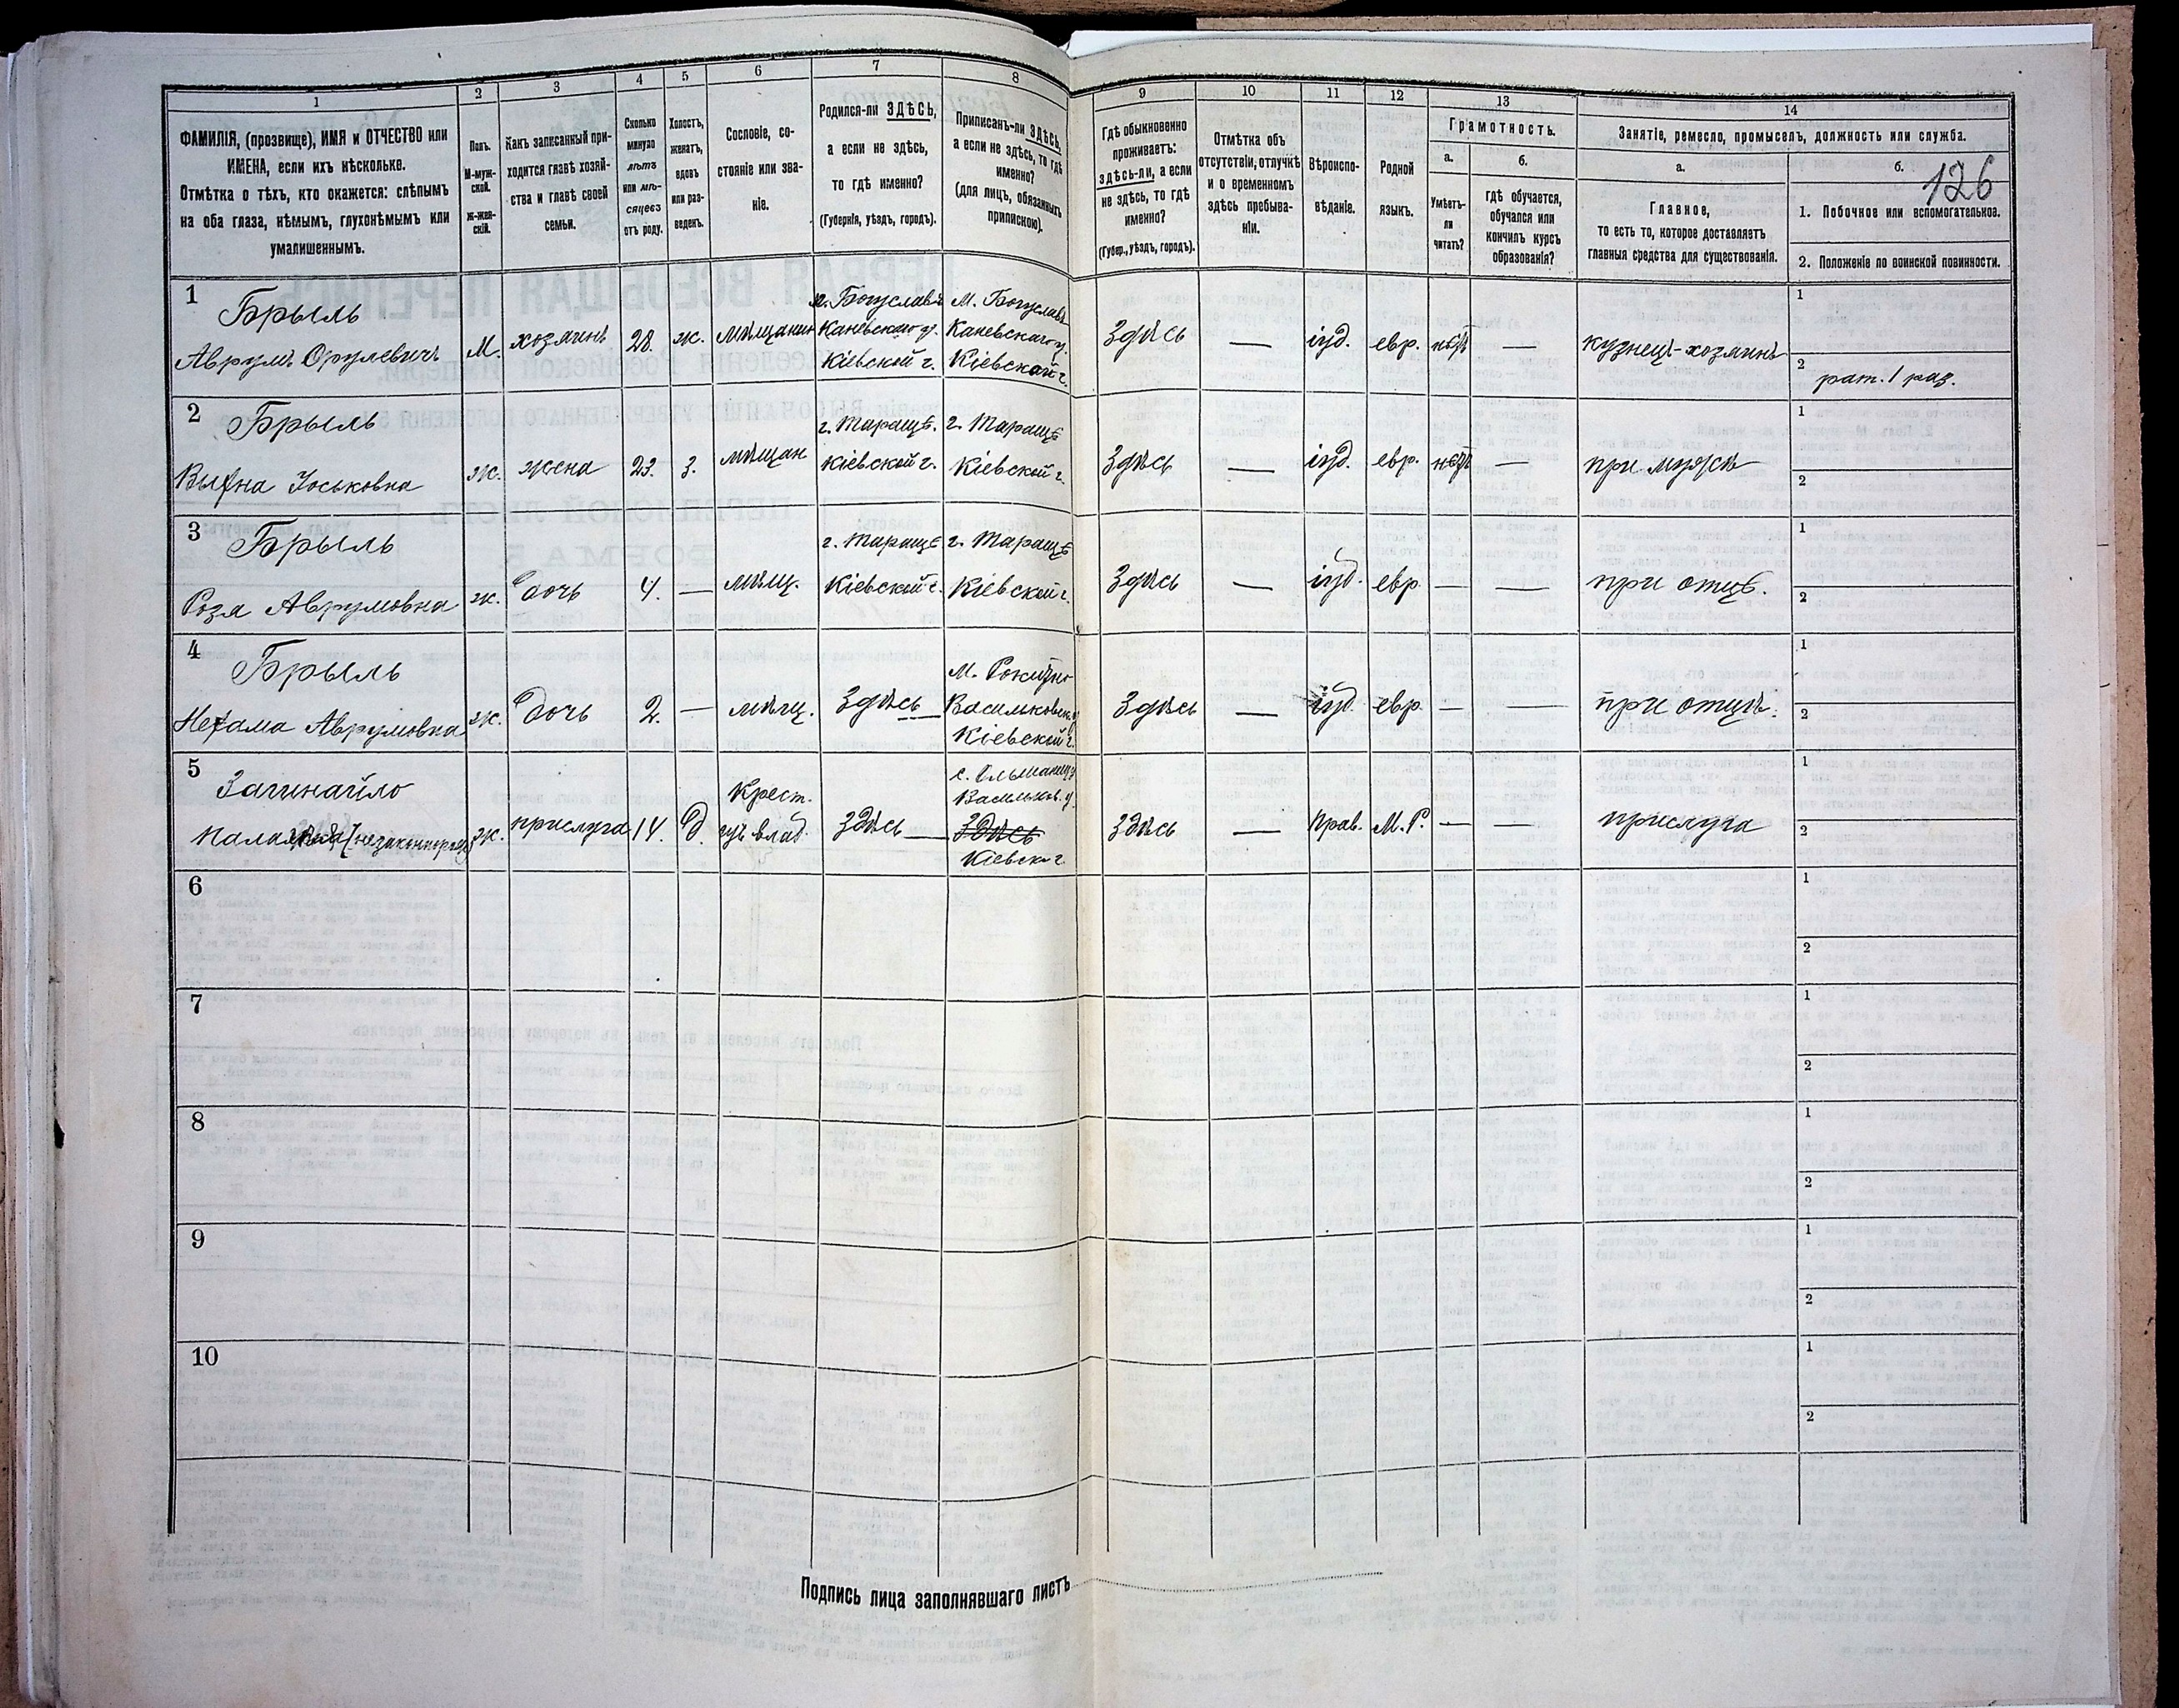 126
1
ФАМИЛІЯ, (прозвище), ИМЯ и ОТЧЕСТВО или
ИМЕНА, если ихъ нѣсколько.
Отмѣтка о тѣхъ, кто окажется: слѣпымъ
на оба глаза, нѣмымъ, глухонѣмымъ или
умалишеннымъ.
2
Полъ.
М-муж-
ской.
ж-жен-
скій.
3
Какъ записанный при-
ходится главѣ хозяй-
ства и главѣ своей
семьи.
4
Сколько
минуло
лѣтъ
или мѣ-
сяцевъ
отъ роду.
5
Холостъ,
женатъ,
вдовъ
или раз-
веденъ.
6
Сословіе, со-
стояніе или зва-
ніе.
7
Родился-ли ЗДѢСЬ,
а если не здѣсь,
то гдѣ именно?
(Губернія, уѣздъ, городъ).
8
Приписанъ-ли ЗДѢСЬ,
а если не здѣсь, то гдѣ
именно?
(для лицъ, обязанныхъ
припискою).
9
Гдѣ обыкновенно
проживаетъ:
здѣсь-ли, а если
не здѣсь, то гдѣ
именно?
(Губер., уѣздъ, городъ).
10
Отмѣтка объ
отсутствіи, отлучкѣ
и о временномъ
здѣсь пребыва-
ніи.
11
Вѣроиспо-
вѣданіе.
12
Родной
языкъ.
13
Грамотность.
а.
Умѣетъ-
ли
читать?
б.
гдѣ обучается,
обучался или
кончилъ курсъ
образованія?
14
Занятіе, ремесло, промыселъ, должность или служба.
а.
Главное,
то есть то, которое доставляетъ
главныя средства для существованія.
б.
1. Побочное или вспомогательное.
2. Положеніе по воинской повинности.
1
Брыль
Аврумъ Орулевичъ
М.
хозяинъ
28.
ж.
мѣщанин
м. Богуславъ
Каневского у.
Кіевской г.
М. Богуславъ
Каневскаго у.
Кіевской г.
Здѣсь
—
іуд.
евр.
нѣтъ
—
кузнецъ-хозяинъ
1
2
рат. 1 раз.
2
Брыль
Іоськовна
ж.
жена
23.
з.
мѣщан
г. Таращѣ.
Кіевской г.
г. Таращѣ
Кіевской г.
Здѣсь
—
іуд.
евр.
нѣтъ
—
при мужѣ
1
2
3
Брыль
Роза Аврумовна
ж.
дочь
4.
—
мѣщ.
г. Таращѣ
Кіевской г.
г. Таращѣ
Кіевской г.
Здѣсь
—
іуд.
евр
—
—
при отцѣ.
1
2
4
Брыль
Нехама Аврумовна
ж.
дочь
2.
—
мѣщ.
Здѣсь
М. Рокитно
Васильковск. у
Кіевской г.
Здѣсь
—
іуд
евр
—
—
при отцѣ.
1
2
5
Зачинайло
(незаконнорож)
ж.
прислуга
14.
д.
Крест.
изъ влад.
здѣсь —
с. Ольшаница
Васильков. у.
здѣсь
Кіевск г.
здѣсь
—
прав.
М. Р.
—
—
прислуга
1
2
6
1
2
7
1
2
8
1
2
9
1
2
10
1
2
Подпись лица заполнявшаго листъ